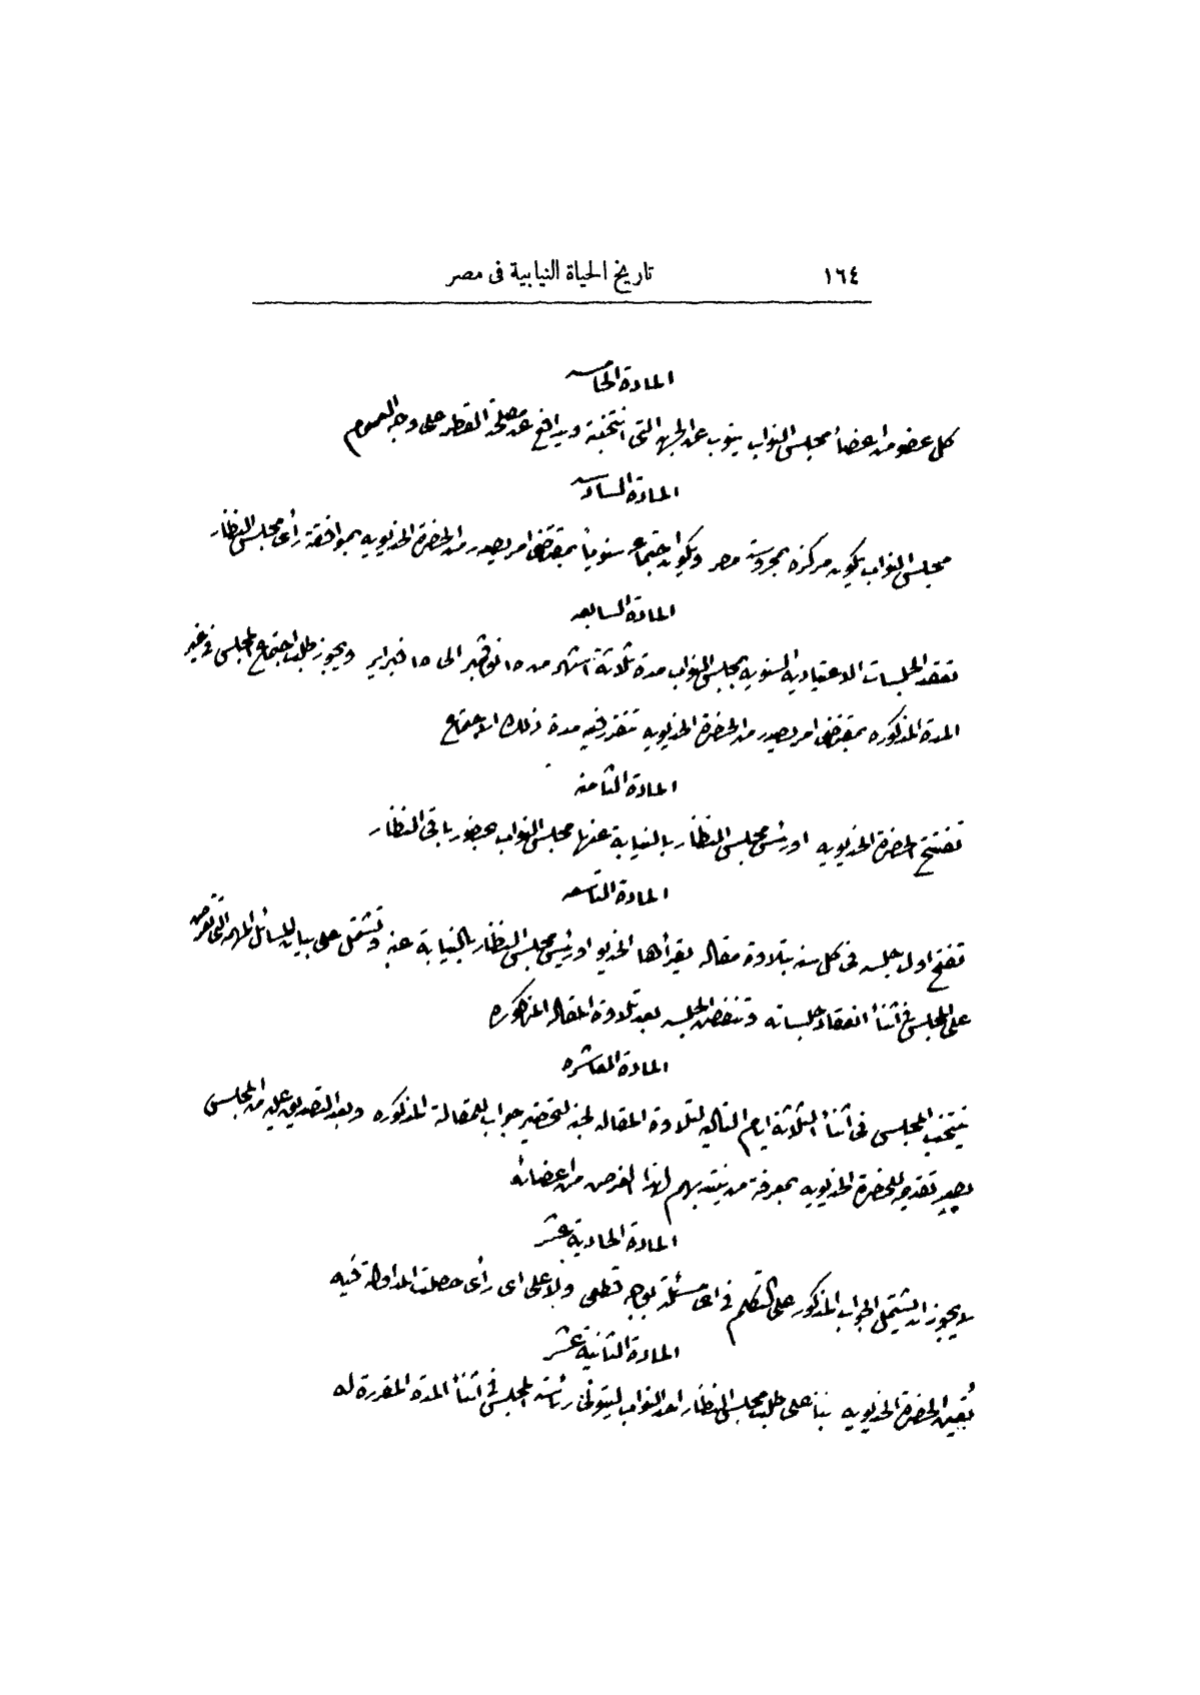 ١٦٤ تاريخ الحياة النيابية فى مصر
المادة الخامسه
كل عضو من اعضأ مجلس النواب ينوب عن الجهة التى انتخبته ويدافع عن مصلحة القطر على وجه العموم
المادة السادسه
مجلس النواب يكون مركزه بمحروسة مصر ويكون اجتماعه سنوياً بمقتضى امر يصدر من الحضرة الخديويه بموافقة رأى مجلس النظار
المادة السابعه
تعقد الجلسات الاعتياديه السنويه بمجلس النواب مدة ثلاثة اشهر من ١٥ نوفمبر الى ١٥ فبراير ويجوز طلب اجتماع المجلس فى غير
المدة المذكوره بمقتضى امر يصدر من الحضرة الخديويه تتقرر فيه مدة ذلك الاجتماع
المادة الثامنه
تفتتح الحضرة الخديويه او رئيس مجلس النظار بالنيابة عنها مجلس النواب بحضور باقى النظار
المادة التاسعه
تفتح اول جلسه فى كل سنه بتلاوة مقاله يقرأها الخديو او رئيس مجلس النظار بالنيابة عنه وتشتمل على بيان المسائل المهمه التى تعرض
على المجلس فى اثنأ انعقاد جلساته وتنفض الجلسه بعد تلاوة المقاله المذكوره
المادة العاشره
ينتخب المجلس فى اثنأ الثلاثة ايام التاليه لتلاوة المقاله لجنه لتحضير جواب للمقالة المذكوره وبعد التصديق عليه من المجلس
يصير تقديمه للحضرة الخديويه بمعرفة من ينتدبهم لهذا الغرض من اعضائه
المادة الحادية عشر
لا يجوز ان يشتمل الجواب المذكور على التكلم فى اى مسئلة بوجه قطعى ولا على اى رأى حصلت المداولة فيه
المادة الثانية عشر
تُعين الحضرة الخديويه بنأ على طلب مجلس النظار احد النواب ليتولى رئاسة المجلس فى اثنأ المدة المقررة له